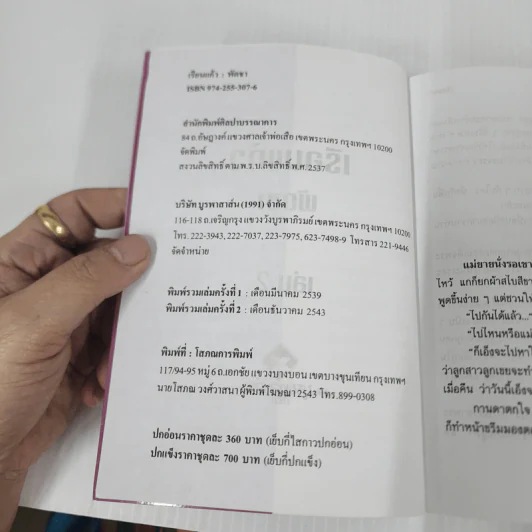 เรือนแก้ว : พัดชา
ISBN 974-255-307-6
สำนักพิมพ์ศิลปาบรรณาคาร
84 ถ.อัษฎางค์ แขวงศาลเจ้าพ่อเสือ เขตพระนคร กรุงเทพฯ 10200
จัดพิมพ์
สงวนลิขสิทธิ์ ตาม พ.ร.บ.ลิขสิทธิ์ พ.ศ.2537
บริษัท บูรพาสาส์น (1991) จำกัด
116-118 ถ.เจริญกรุง แขวงวังบูรพาภิรมย์ เขตพระนคร กรุงเทพฯ 10200
โทร. 222-3943, 222-7037, 223-7975, 623-7498-9 โทรสาร 221-9446
จัดจำหน่าย
พิมพ์รวมเล่มครั้งที่ 1 : เดือนมีนาคม 2539
พิมพ์รวมเล่มครั้งที่ 2 : เดือนธันวาคม 2543
พิมพ์ที่ : โสภณการพิมพ์
117/94-95 หมู่ 6 ถ.เอกชัย แขวงบางบอน เขตบางขุนเทียน กรุงเทพฯ
นายโสภณ วงศ์วาสนา ผู้พิมพ์โฆษณา 2543 โทร.899-0308
ปกอ่อนราคาชุดละ 360 บาท (เย็บกี่ไสกาวปกอ่อน)
ปกแข็งราคาชุดละ 700 บาท (เย็บกี่ปกแข็ง)
แม่ยายนั่งรอเขา
ไหว้ แกก็ยกผ้าสไบสีขา
พูดขึ้นง่าย ๆ แต่ชวนให
"ไปกันได้แล้ว..."
"ไปไหนหรือแม่
"ก็เอ็งจะไปหาใ
ว่าลูกสาวลูกเขยจะทำ
เมื่อคืน ว่าวันนี้เอ็งจ
กานดาตกใจ
ก็ทำหน้าขรึมมองต